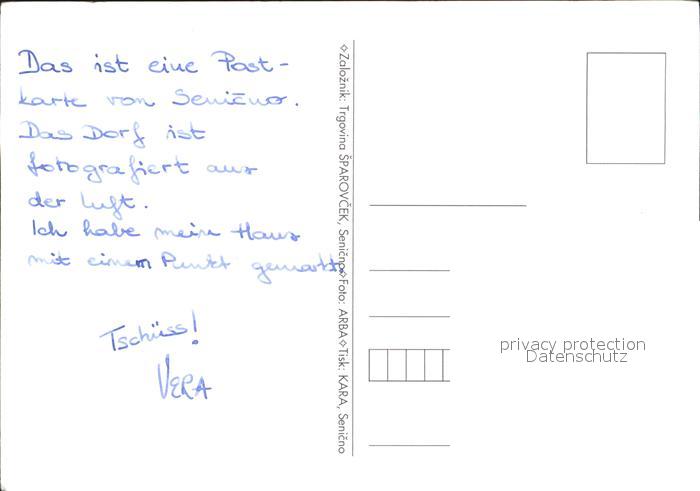 Das ist eine Post-
karte von Senično.
Das Dorf ist
fotografiert aus
der Luft.
Ich habe mein Haus
mit einem Punkt gemarkt.
Tschüss!
VERA
◇Založnik: Trgovina ŠPAROVČEK, Senično◇Foto: ARBA◇Tisk: KARA, Senično
privacy protection
Datenschutz